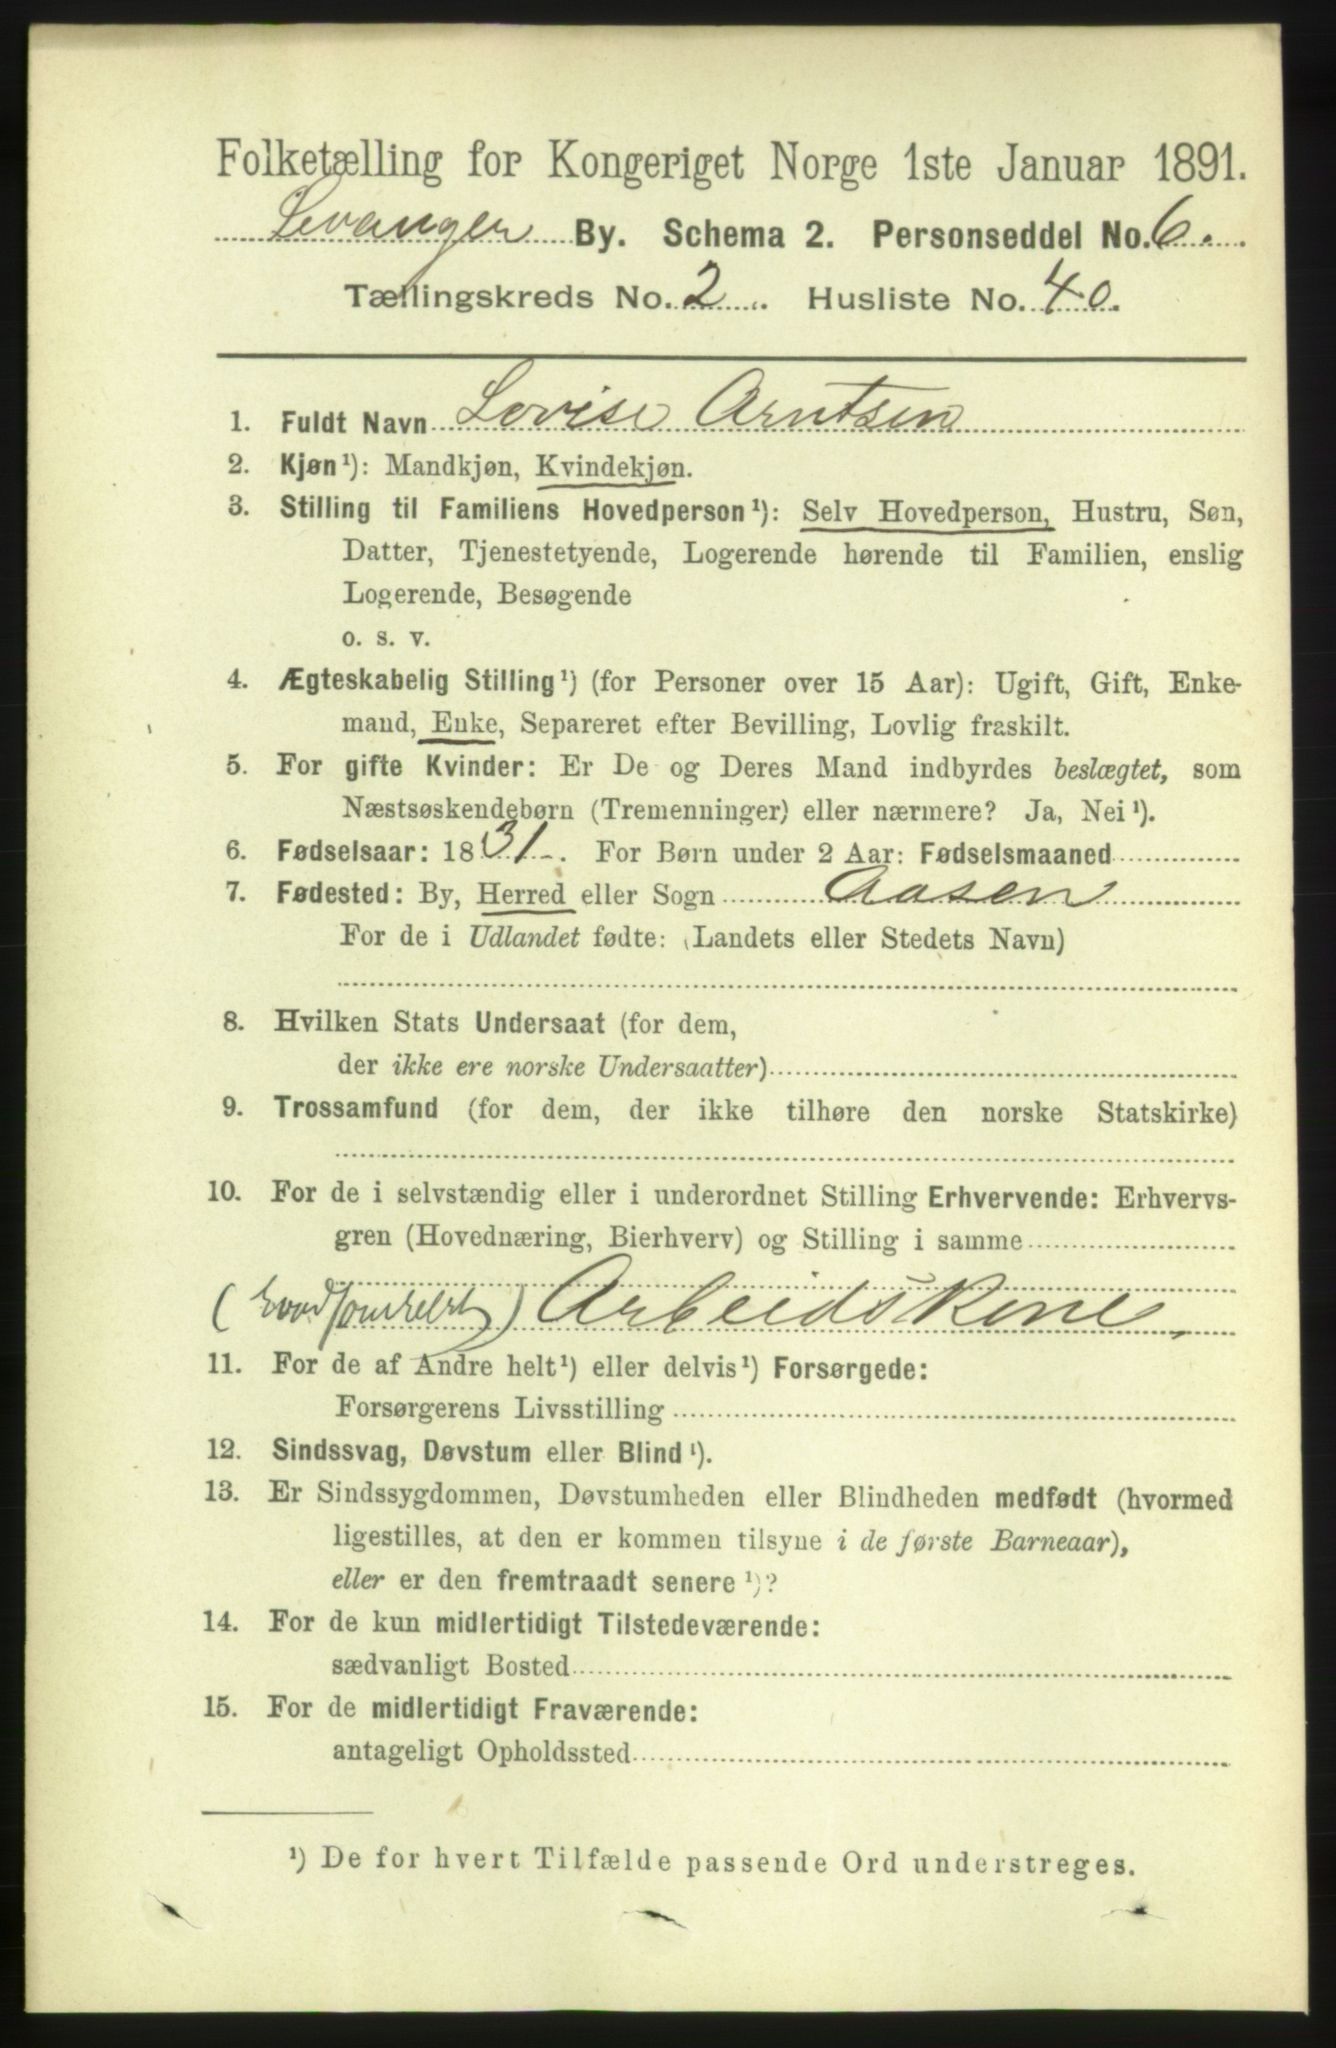 Folketælling for Kongeriget Norge 1ste Januar 1891.
Levanger By. Schema 2. Personseddel No. 6.
Tællingskreds No. 2. Husliste No. 40.
1. Fuldt Navn Lovise Arntsen
2. Kjøn¹): Mandkjøn, Kvindekjøn.
3. Stilling til Familiens Hovedperson¹): Selv Hovedperson, Hustru, Søn,
Datter, Tjenestetyende, Logerende hørende til Familien, enslig
Logerende, Besøgende
o. s. v.
4. Ægteskabelig Stilling¹) (for Personer over 15 Aar): Ugift, Gift, Enke-
mand, Enke, Separeret efter Bevilling, Lovlig fraskilt.
5. For gifte Kvinder: Er De og Deres Mand indbyrdes beslægtet, som
Næstsøskendebørn (Tremenninger) eller nærmere? Ja, Nei¹).
6. Fødselsaar: 1831. For Børn under 2 Aar: Fødselsmaaned
7. Fødested: By, Herred eller Sogn Aasen
For de i Udlandet fødte: (Landets eller Stedets Navn)
8. Hvilken Stats Undersaat (for dem,
der ikke ere norske Undersaatter)
9. Trossamfund (for dem, der ikke tilhøre den norske Statskirke)
10. For de i selvstændig eller i underordnet Stilling Erhvervende: Erhvervs-
gren (Hovednæring, Bierhverv) og Stilling i samme
Arbeidskone,
11. For de af Andre helt¹) eller delvis¹) Forsørgede:
Forsørgerens Livsstilling
12. Sindssvag, Døvstum eller Blind¹).
13. Er Sindssygdommen, Døvstumheden eller Blindheden medfødt (hvormed
ligestilles, at den er kommen tilsyne i de første Barneaar),
eller er den fremtraadt senere¹)?
14. For de kun midlertidigt Tilstedeværende:
sædvanligt Bosted
15. For de midlertidigt Fraværende:
antageligt Opholdssted
¹) De for hvert Tilfælde passende Ord understreges.